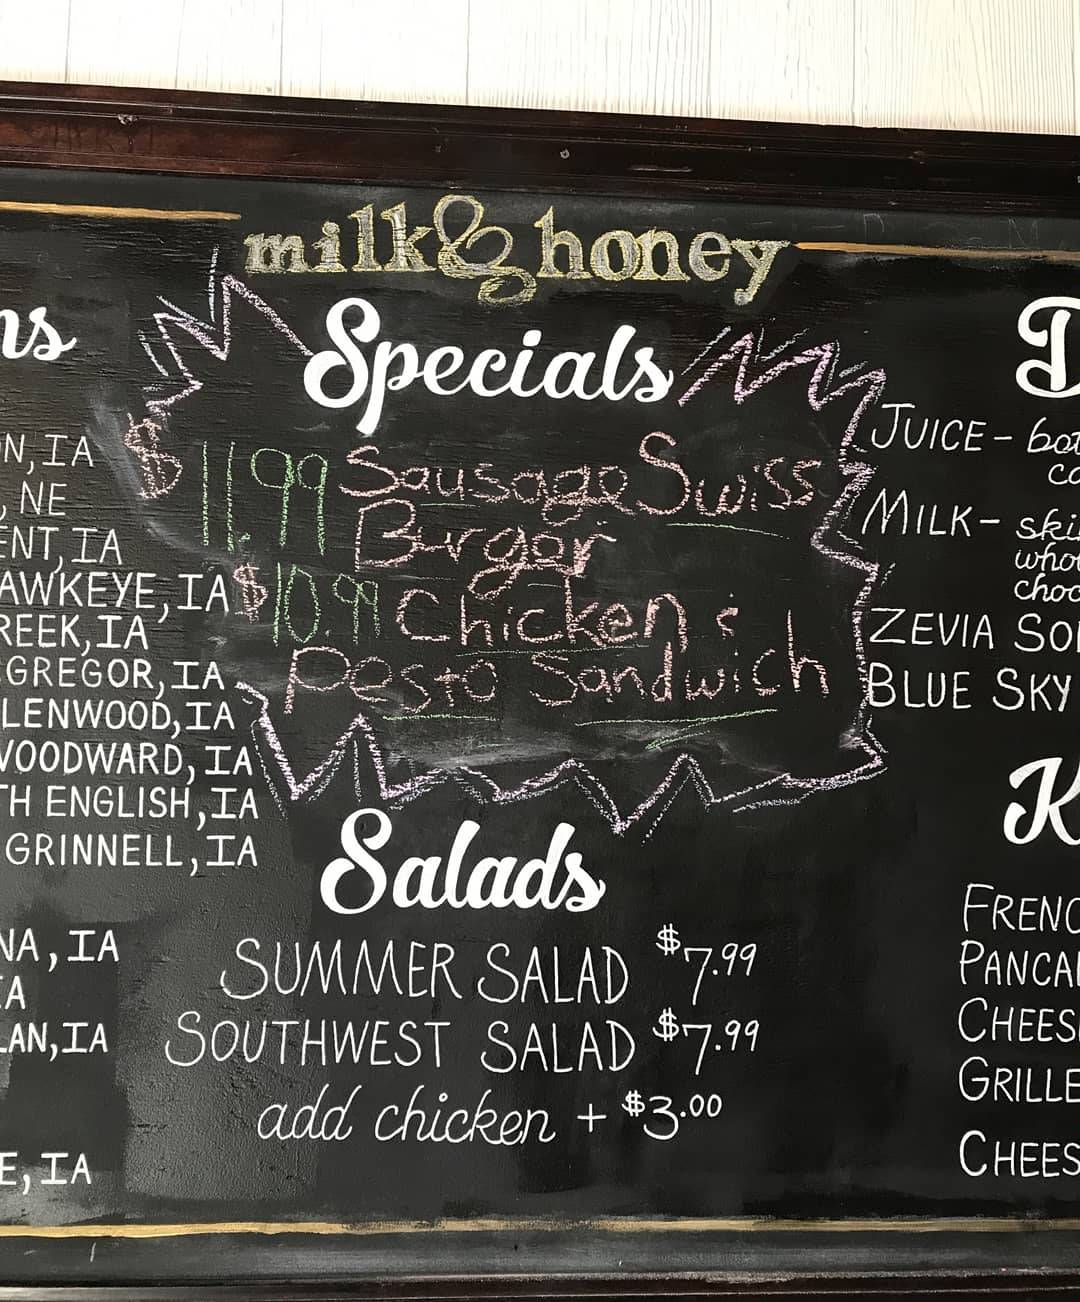 milk & honey
Specials
$11.99 Sausage Swiss
Burger
$10.99 Chicken &
Pesto Sandwich
Salads
SUMMER SALAD $7.99
SOUTHWEST SALAD $7.99
add chicken + $3.00
ns
N, IA
, NE
ENT, IA
AWKEYE, IA
REEK, IA
GREGOR, IA
LENWOOD, IA
WOODWARD, IA
TH ENGLISH, IA
GRINNELL, IA
NA, IA
IA
LAN, IA
E, IA
D
JUICE - bot
co
MILK - ski
who
choc
ZEVIA SO
BLUE SKY
K
FRENC
PANCA
CHEES
GRILLE
CHEES